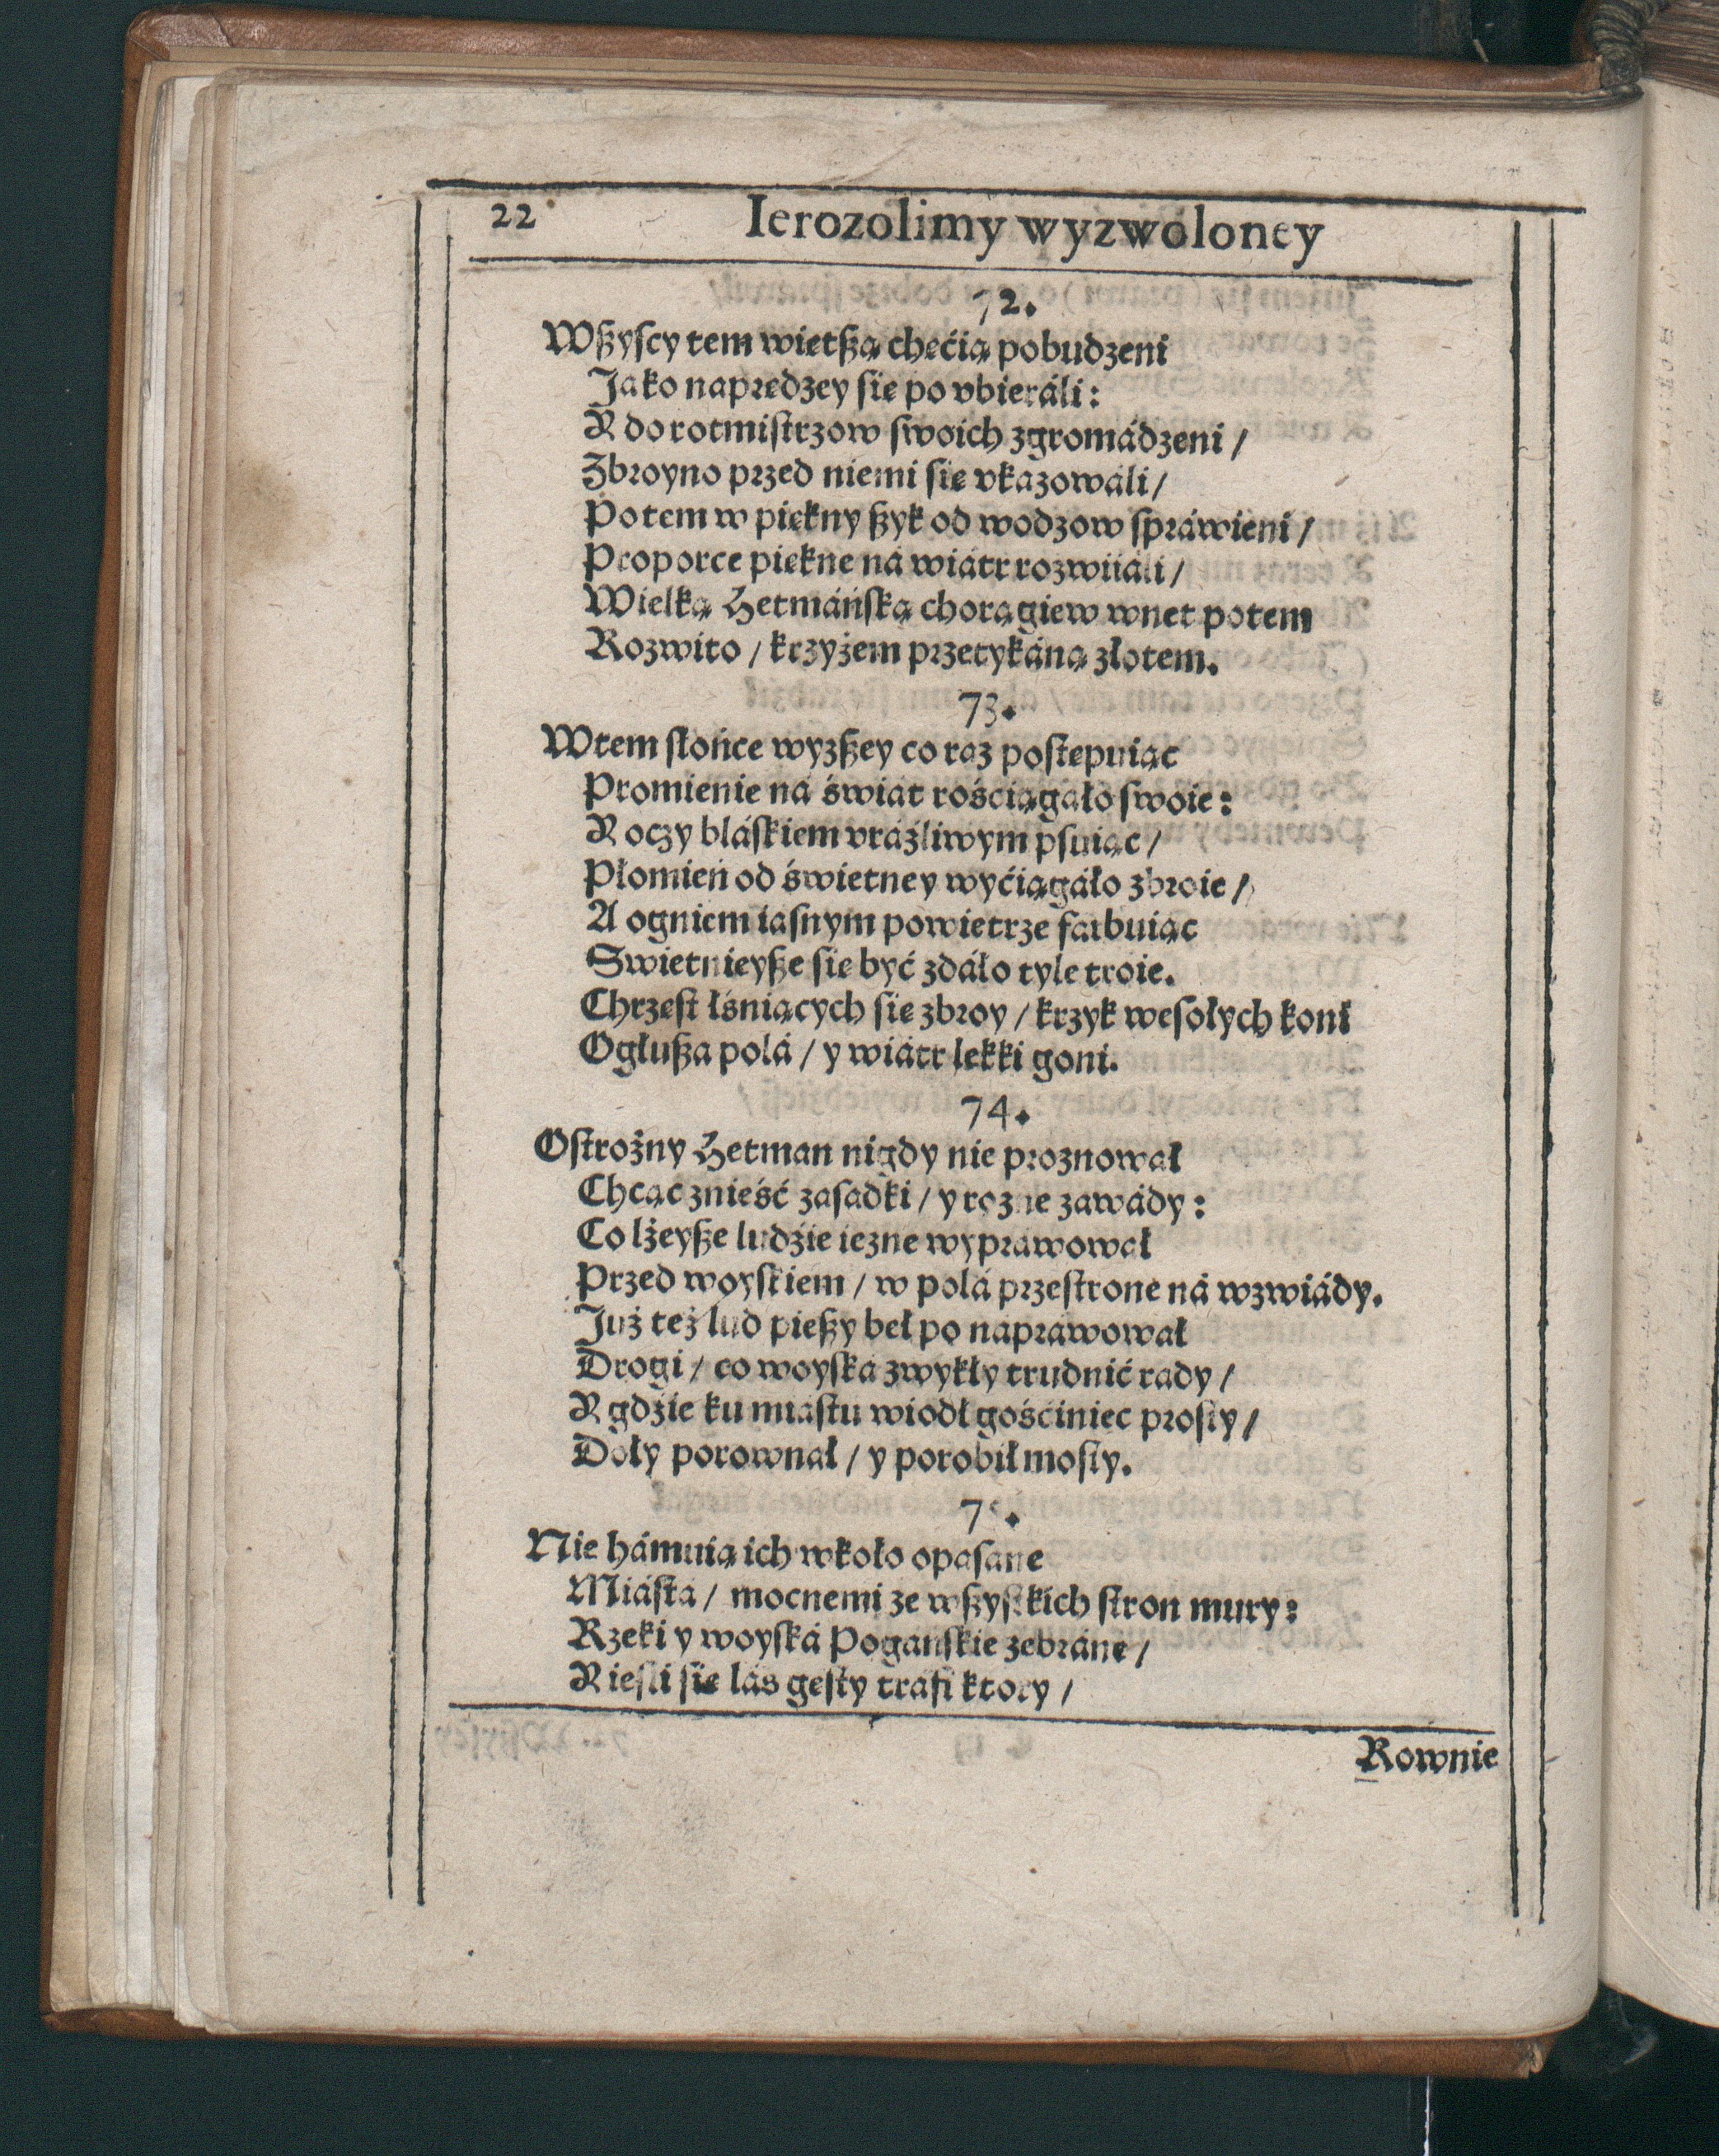 22 Ierozolimy wyzwoloney
72.
Wßyſcy tem wietßą chęćią pobudzeni
Jako naprędzey ſię po vbieráli:
R do rotmiſtrzow ſwoich zgromádzeni /
Zbroyno przed niemi ſię vkazowáli /
Potem w piękny ßyk od wodzow ſpráwieni /
Proporce piękne ná wiátr rozwiiáli /
Wielką Hetmáńſką chorągiew wnet potem
Rozwito / krzyżem przetykáną złotem.
73.
W tem ſłońce wyzßey co raz poſtępuiąc
Promienie ná świát rośćiągáło ſwoie:
R oczy bláſkiem vráźliwym pſuiąc /
Płomień od świetney wyćiągáło zbroie /
A ogniem iaſnym powietrze farbuiąc
Swietnieyße ſię być zdáło tyle troie.
Chrzęſt łśniących ſię zbroy / krzyk weſołych koni
Ogłußa polá / y wiátr lekki goni.
74.
Oſtrożny Hetman nigdy nie proznował
Chcąc znieść zaſadki / y rozne zawády:
Co lżeyße ludźie iezne wypráwował
Przed woyſkiem / w polá przeſtrone ná wzwiády.
Już też lud pießy beł po napráwował
Drogi / co woyſká zwykły trudnić rady /
R gdźie ku miáſtu wiodł gośćiniec proſty /
Doły porownał / y porobił moſty.
7
Nie hámuią ich wkoło opaſane
Miáſtá / mocnemi ze wßyſtkich ſtron mury:
Rzeki y woyſká Pogańſkie zebráne /
R ieſli ſię lás gęſty tráfi ktory /
Rownie